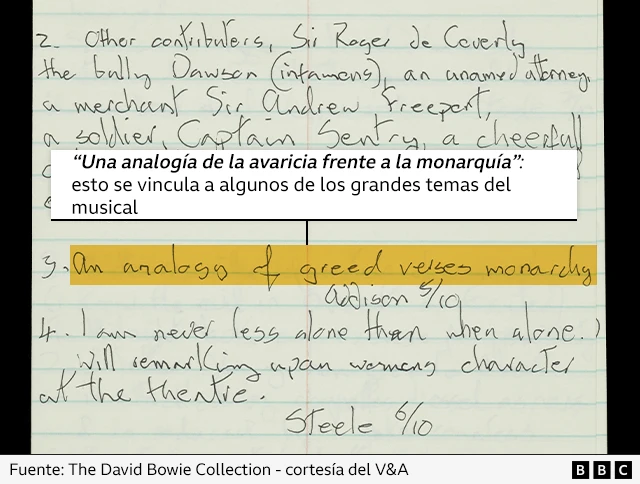 2. Other contributers, Sir Roger de Coverly
the bully Dawson (infamous), an unamed attorney,
a merchant Sir Andrew Freeport,
a soldier, Captain Sentry, a cheerfull
“Una analogía de la avaricia frente a la monarquía”:
esto se vincula a algunos de los grandes temas del
musical
3. An analogy of greed verses monarchy
Addison 5/10
4. I am never less alone than when alone.)
Will remarking upon womens character
at the theatre.
Steele 6/10
Fuente: The David Bowie Collection - cortesía del V&A
BBC